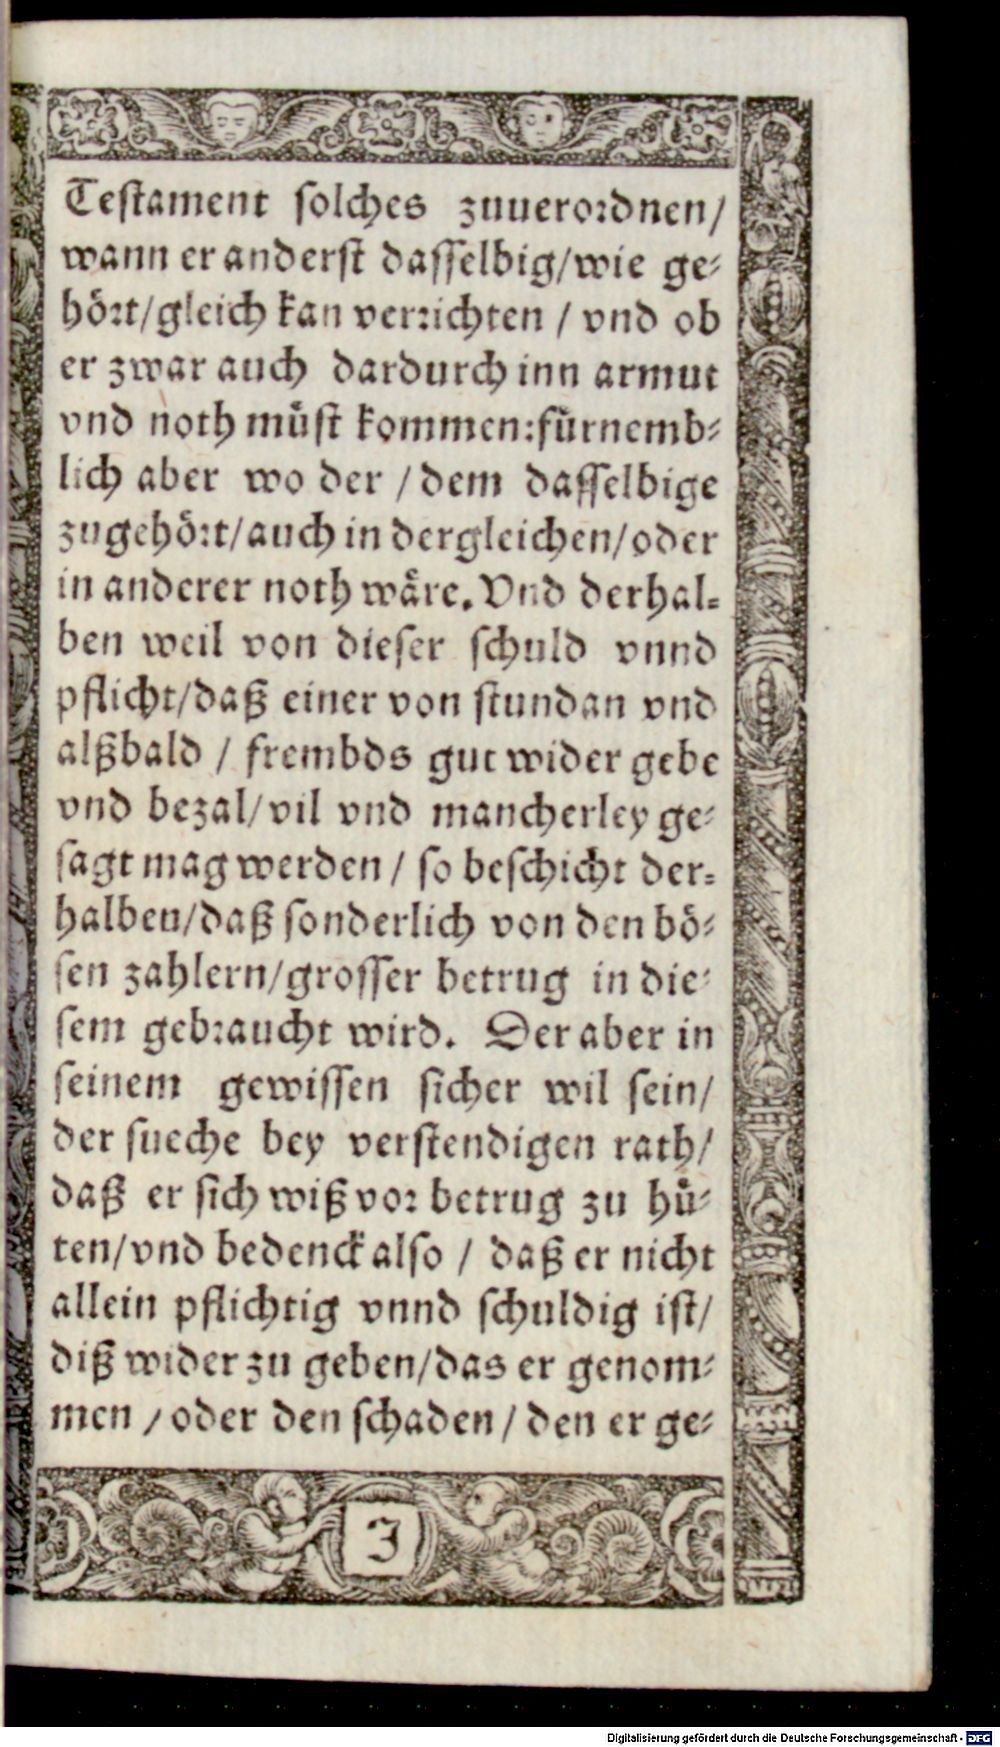 Testament ſolches zuuerordnen/
wann er anderſt daſſelbig/wie ge⸗
hoͤrt/gleich kan verrichten / vnd ob
er zwar auch dardurch inn armut
vnd noth muͤſt kommen:fuͤrnemb⸗
lich aber wo der / dem daſſelbige
zugehoͤrt/auch in dergleichen/oder
in anderer noth waͤre. Vnd derhal⸗
ben weil von dieſer ſchuld vnnd
pflicht/daß einer von ſtundan vnd
alßbald / frembds gut wider gebe
vnd bezal/vil vnd mancherley ge⸗
ſagt mag werden / ſo beſchicht der⸗
halben/daß ſonderlich von den boͤ⸗
ſen zahlern/groſſer betrug in die⸗
ſem gebraucht wird. Der aber in
ſeinem gewiſſen ſicher wil ſein/
der ſueche bey verſtendigen rath/
daß er ſich wiß vor betrug zu huͤ⸗
ten/vnd bedenck alſo / daß er nicht
allein pflichtig vnnd ſchuldig iſt/
diß wider zu geben/das er genom⸗
men / oder den ſchaden / den er ge⸗
J
Digitalisierung gefördert durch die Deutsche Forschungsgemeinschaft - DFG